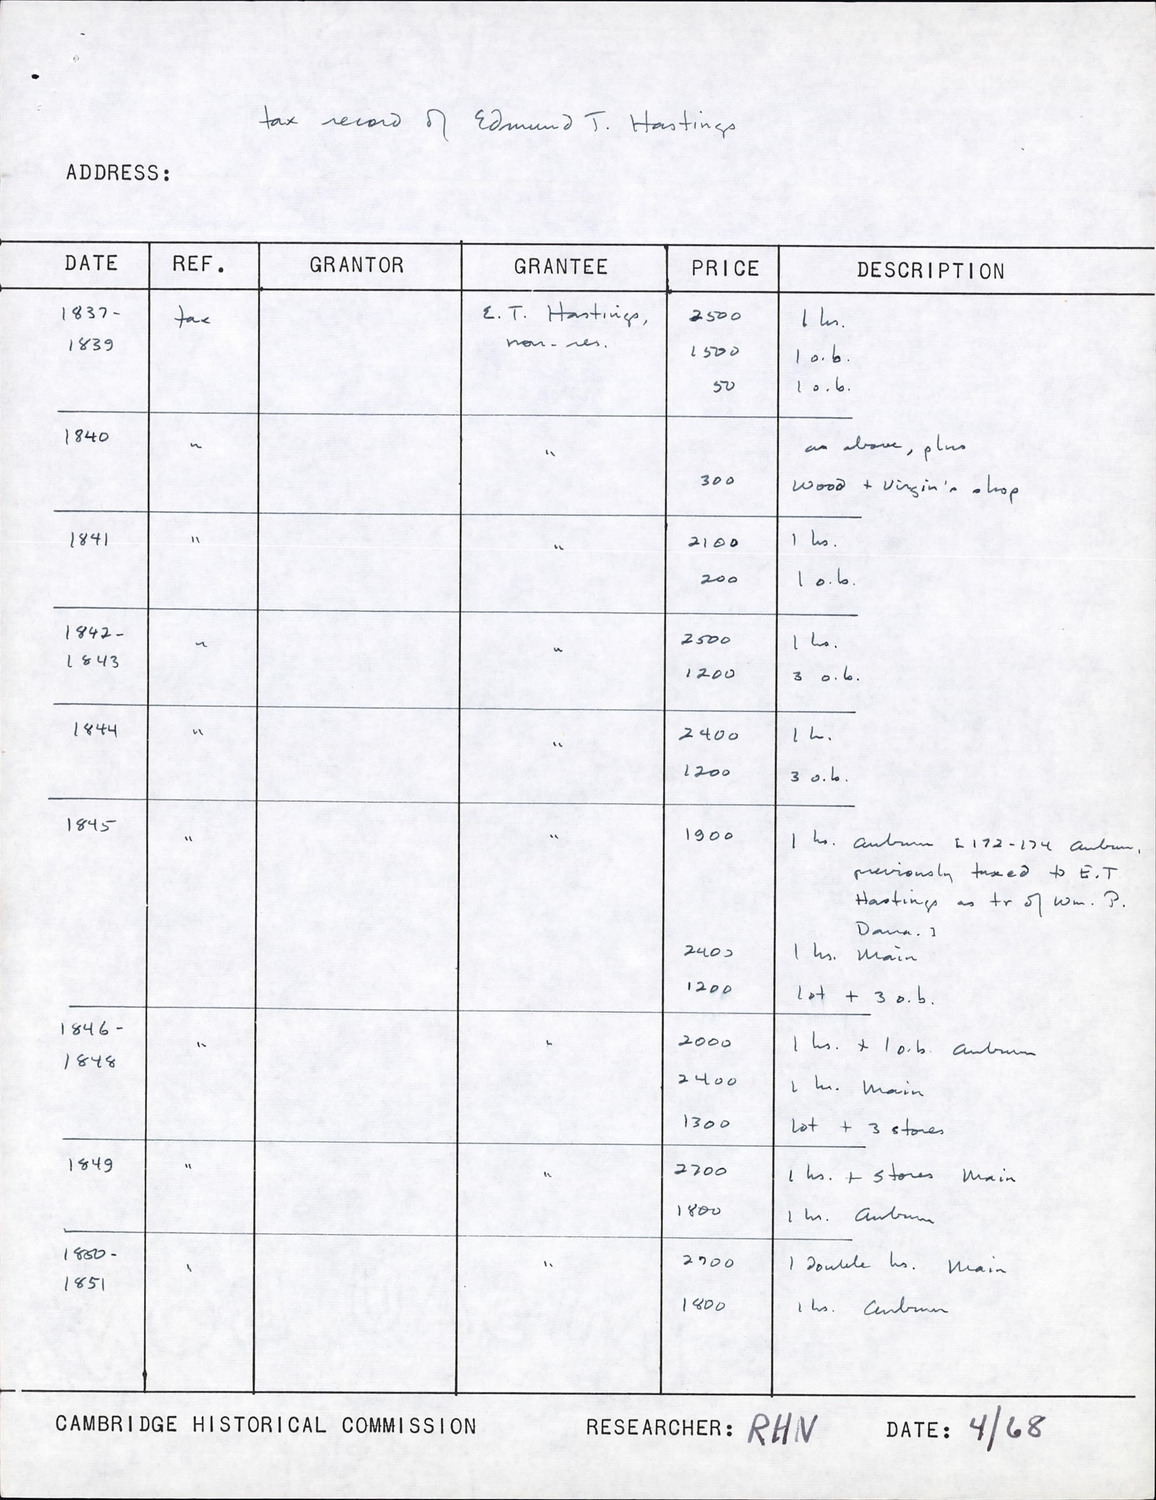 tax record of Edmund T. Hastings
ADDRESS:
DATE REF. GRANTOR GRANTEE PRICE DESCRIPTION
1837- tax E. T. Hastings, 2500 1 hs.
1839 non-res. 1500 1 o.b.
50 1 o.b.
1840 " " as above, plus
300 Wood + Virgin's shop
1841 " " 2100 1 hs.
200 1 o.b.
1842- " " 2500 1 hs.
1843 1200 3 o.b.
1844 " " 2400 1 h.
1200 3 o.b.
1845 " " 1900 1 hs. Auburn [172-174 Auburn,
previously taxed to E.T
Hastings as tr of Wm. P.
Dana.]
2400 1 hs. Main
1200 lot + 3 o.b.
1846- " " 2000 1 hs. + 1 o.b. Auburn
1848 2400 1 hs. Main
1300 lot + 3 stores
1849 " " 2700 1 hs. + stores Main
1800 1 hs. Auburn
1850- " " 2700 1 double hs. Main
1851 1800 1 hs. Auburn
CAMBRIDGE HISTORICAL COMMISSION RESEARCHER: RHN DATE: 4/68